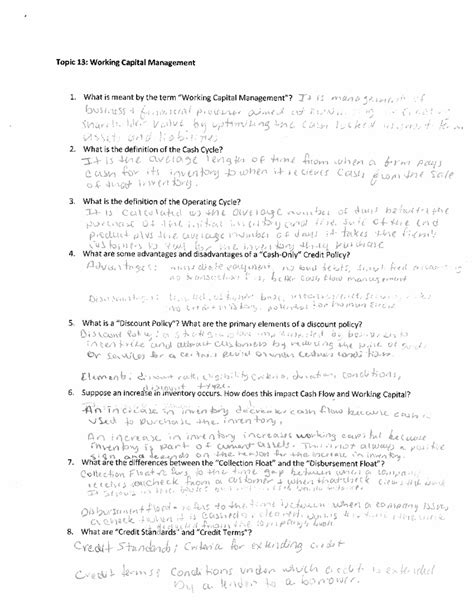 Topic 13: Working Capital Management
1. What is meant by the term "Working Capital Management"? It is management of
business & financial processes aimed at
shareholder value by optimizing the cash locked
assets and liabilities
2. What is the definition of the Cash Cycle?
It is the average length of time from when a firm pays
cash for its inventory to when it recieves cash from the sale
of that inventory.
3. What is the definition of the Operating Cycle?
It is calculated as the average number of days between the
purchase of the initial inventory and the sale of the end
product plus the average number of days it takes the firm's
customers to pay for the inventory they purchase
4. What are some advantages and disadvantages of a "Cash-Only" Credit Policy?
Advantages: immediate payment, no bad debts, simplified
no transaction, better cash flow management
Disadvantages: customer base,
potential for human error
5. What is a "Discount Policy"? What are the primary elements of a discount policy?
Discount Policy: a strategy by businesses to
incentivize and attract customers by reducing the price of goods
or services for a certain period or under certain conditions.
Elements: discount rate, eligibility criteria, duration, conditions,
discount type.
6. Suppose an increase in inventory occurs. How does this impact Cash Flow and Working Capital?
An increase in inventory decreases cash flow because cash is
used to purchase the inventory.
An increase in inventory increases working capital because
inventory is part of current assets. This is not always a positive
sign and depends on the reason for the increase in inventory.
7. What are the differences between the "Collection Float" and the "Disbursement Float"?
Collection Float refers to the time gap between when a company
receives check from a customer & when that check
Disbursement float - refers to the time between when a company issues
check & when it is cleared.
deducted from the company's bank
8. What are "Credit Standards" and "Credit Terms"?
Credit Standards: Criteria for extending credit
Credit terms: Conditions under which credit is extended
by a lender to a borrower.